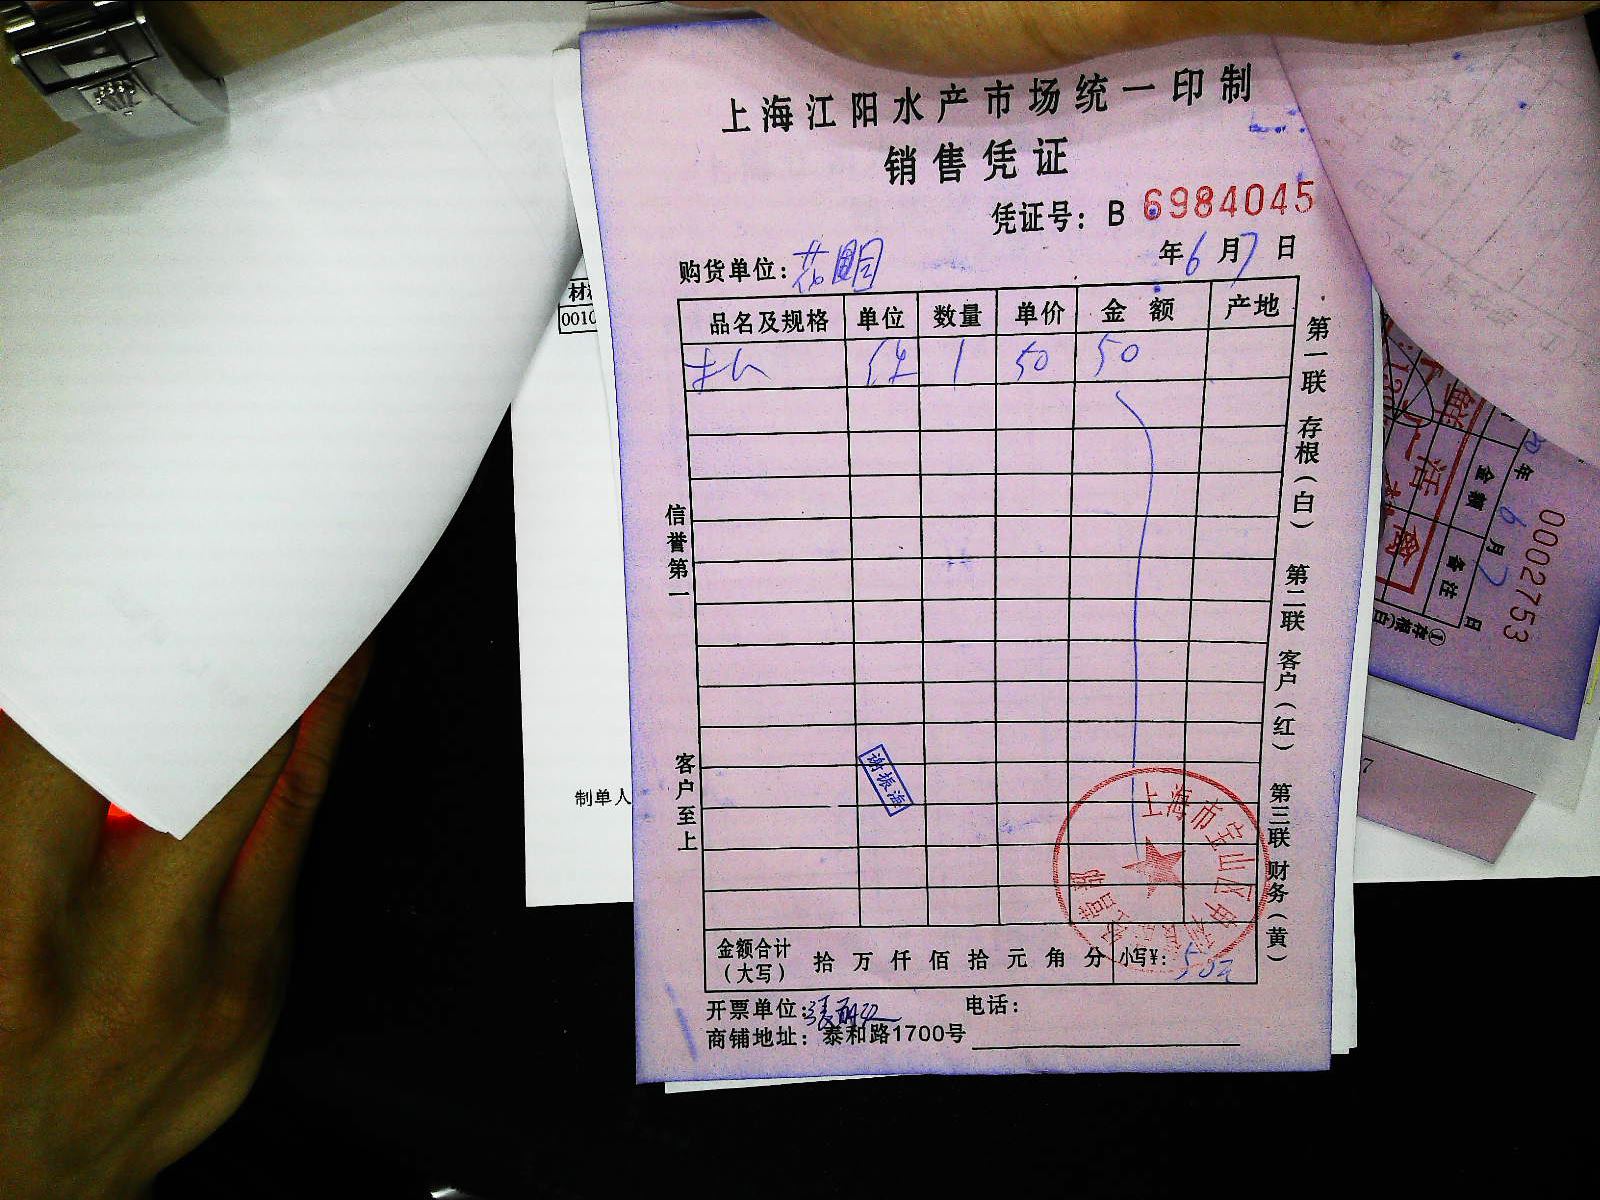 上海江阳水产市场统一印制
销售凭证
凭证号：B 6984045
购货单位： 年6月7日
品名及规格 单位 数量 单价 金额 产地
1 50 50
信誉第一
客户至上
第一联 存根（白） 第二联 客户（红） 第三联 财务（黄）
谢振海
上海市宝山区
金额合计（大写） 拾 万 仟 佰 拾 元 角 分 小写¥：50元
开票单位： 电话：
商铺地址：泰和路1700号
0010
制单人
0002753
年6月7日
金额
备注
①存根(白)
7